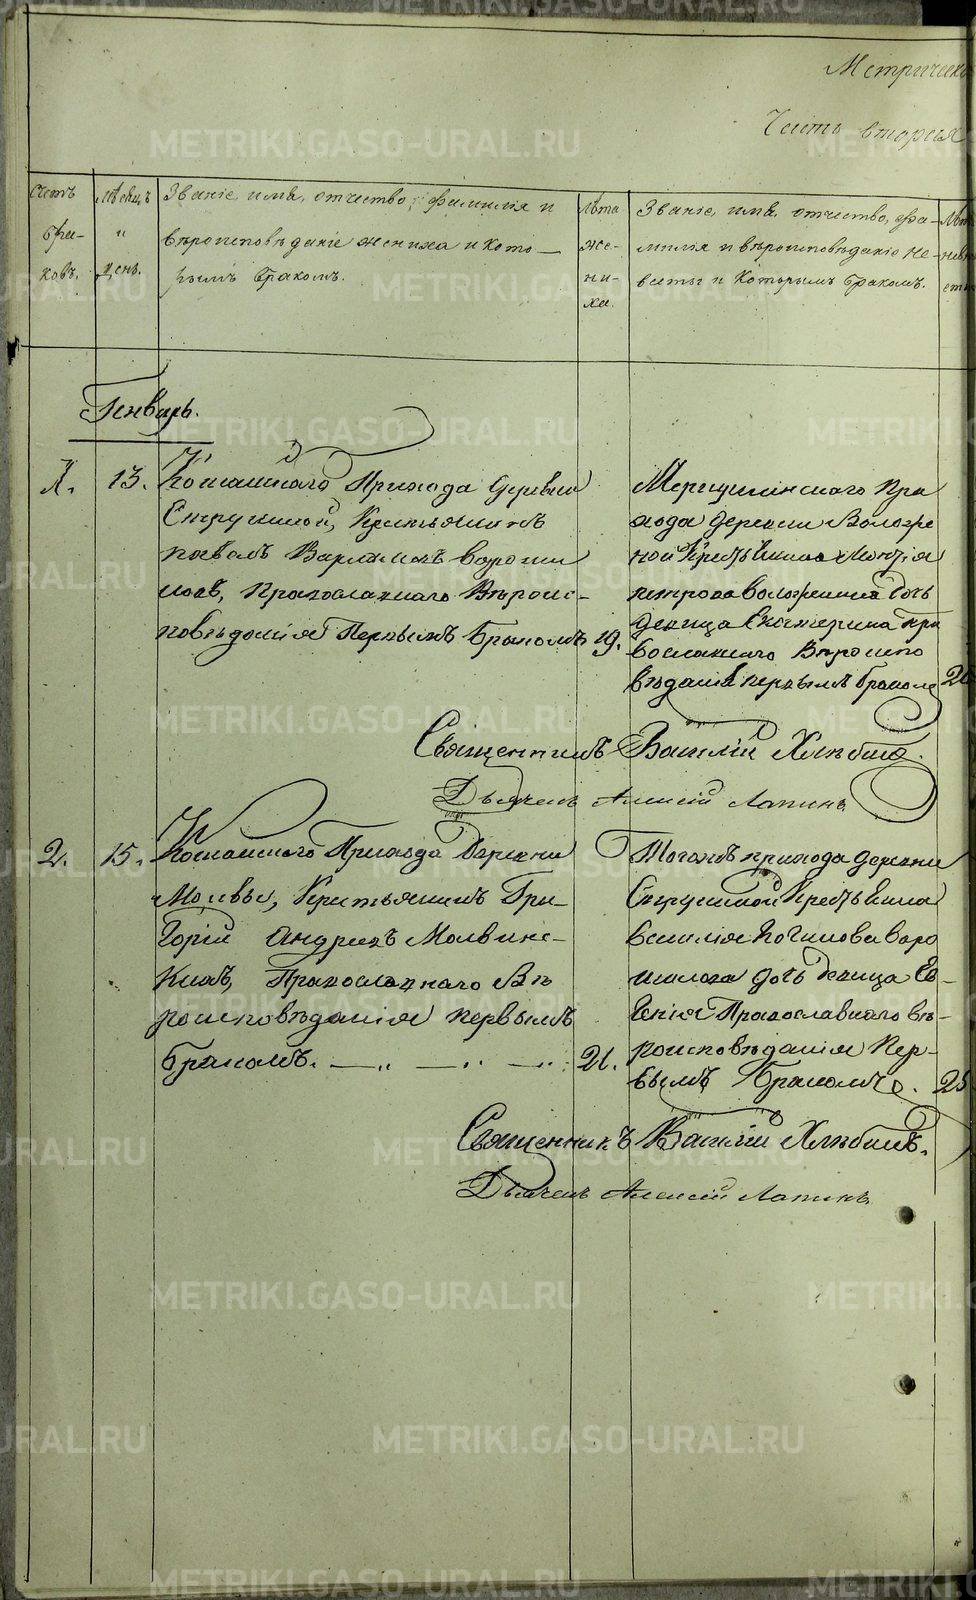 Метрическо
Часть вторая
Счетъ бра- ковъ.
Мѣсяцъ и день.
Званіе, имя, отчество, фамилія и
вѣроисповѣданіе жениха и кото-
рымъ бракомъ.
Лѣта же- ни- ха.
Званіе, имя, отчество, фа-
милія и вѣроисповѣданіе не-
вѣсты и которымъ бракомъ.
Генварь.
1. 13.
Прихода деревни
Крестьянинъ
Варламовъ Вороши
ловъ, Православнаго Вѣроис-
повѣданія Первымъ Бракомъ 19.
При
хода деревни Воложе
ной Крестьянина
Петрова дочь
девица Екатерина Пра
вославнаго Вѣроиспо
вѣданія первымъ бракомъ
Священникъ Василій Хлѣбинъ.
Дьячекъ Алексій Лапинъ
2. 15.
Прихода Деревни
Крестьянинъ Гри-
горій Андреевъ Молвинс-
кихъ, Православнаго Вѣ
роисповѣданія первымъ
бракомъ. 21.
Тогожъ прихода деревни
Крестьянина
Воро
шилова дочь девица Ев-
генія Православнаго вѣ-
роисповѣданія Пер-
вымъ Бракомъ. 25
Священникъ Василій Хлѣбинъ.
Дьячекъ Алексій Лапинъ
METRIKI.GASO-URAL.RU